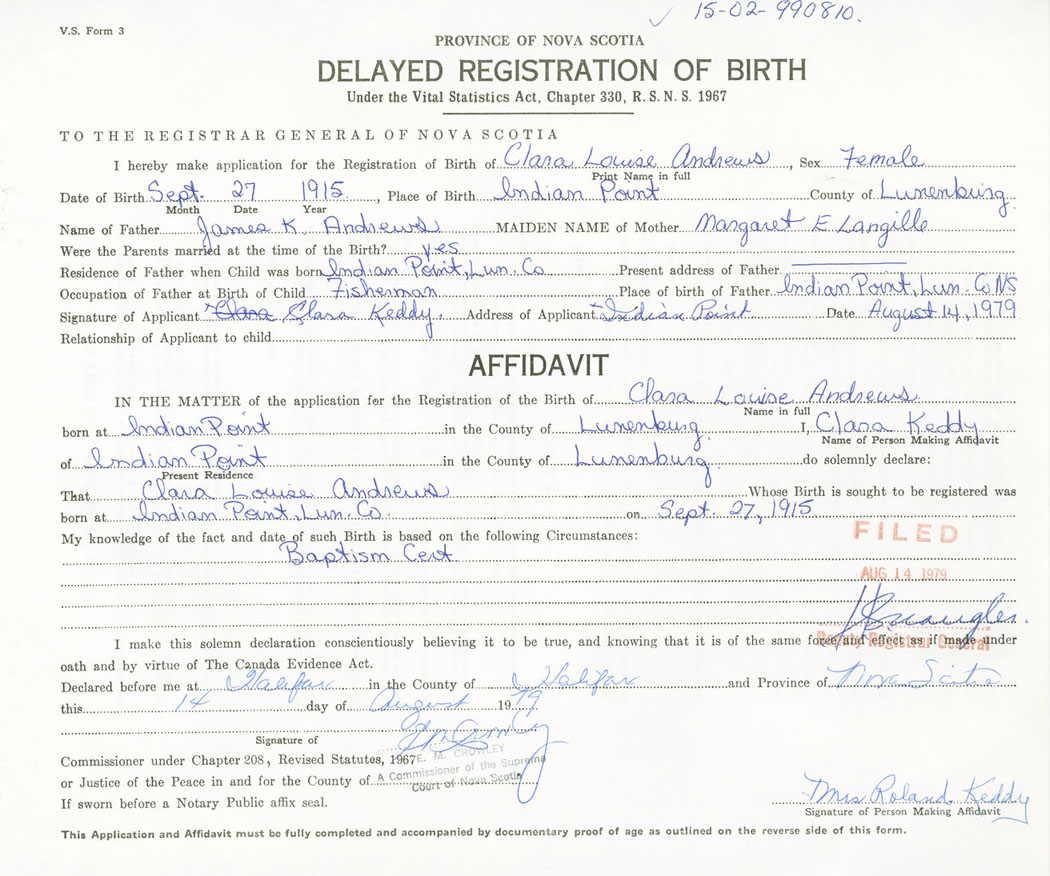 15-02-990810.
V.S. Form 3
PROVINCE OF NOVA SCOTIA
DELAYED REGISTRATION OF BIRTH
Under the Vital Statistics Act, Chapter 330, R. S. N. S. 1967
TO THE REGISTRAR GENERAL OF NOVA SCOTIA
I hereby make application for the Registration of Birth of Clara Louise Andrews, Sex Female
Print Name in full
Date of Birth Sept. 27 1915, Place of Birth Indian Point County of Lunenburg.
Month Date Year
Name of Father James K. Andrews MAIDEN NAME of Mother Margaret E Langille
Were the Parents married at the time of the Birth? yes
Residence of Father when Child was born Indian Point, Lun. Co Present address of Father
Occupation of Father at Birth of Child Fisherman Place of birth of Father Indian Point, Lun. Co NS
Signature of Applicant Clara Clara Keddy. Address of Applicant Indian Point Date August 14, 1979
Relationship of Applicant to child
AFFIDAVIT
IN THE MATTER of the application for the Registration of the Birth of Clara Louise Andrews
Name in full
born at Indian Point in the County of Lunenburg. I, Clara Keddy
Name of Person Making Affidavit
of Indian Point in the County of Lunenburg do solemnly declare:
Present Residence
That Clara Louise Andrews Whose Birth is sought to be registered was
born at Indian Point, Lun. Co. on Sept. 27, 1915
My knowledge of the fact and date of such Birth is based on the following Circumstances:
Baptism Cert.
FILED
AUG 14 1979
Deputy Registrar General
I make this solemn declaration conscientiously believing it to be true, and knowing that it is of the same force and effect as if made under
oath and by virtue of The Canada Evidence Act.
Declared before me at Halifax in the County of Halifax and Province of Nova Scotia
this 14 day of August 1979
Signature of
Commissioner under Chapter 208, Revised Statutes, 1967
E. M. CROWLEY
or Justice of the Peace in and for the County of
A Commissioner of the Supreme
Court of Nova Scotia
If sworn before a Notary Public affix seal.
Mrs Roland Keddy
Signature of Person Making Affidavit
This Application and Affidavit must be fully completed and accompanied by documentary proof of age as outlined on the reverse side of this form.